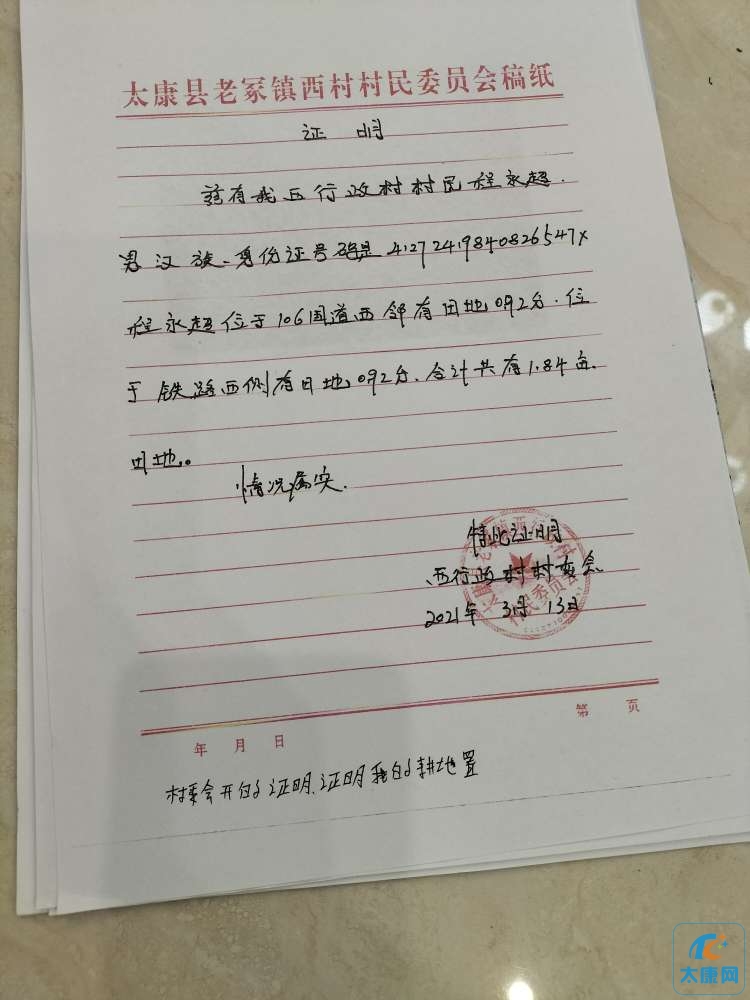 太康县老冢镇西村村民委员会稿纸
证 明
兹有我西行政村村民程永超.
男汉族、身份证号码是41272419840826547X
程永超位于106国道西邻有田地092分.位
于铁路西侧有田地092分、合计共有1.84亩.
田地.。
情况属实.
特此证明
西行政村村委会
2021年 3月 13日
村民委员会
第 页
年 月 日
村委会开的证明、证明我的耕地置
太康网